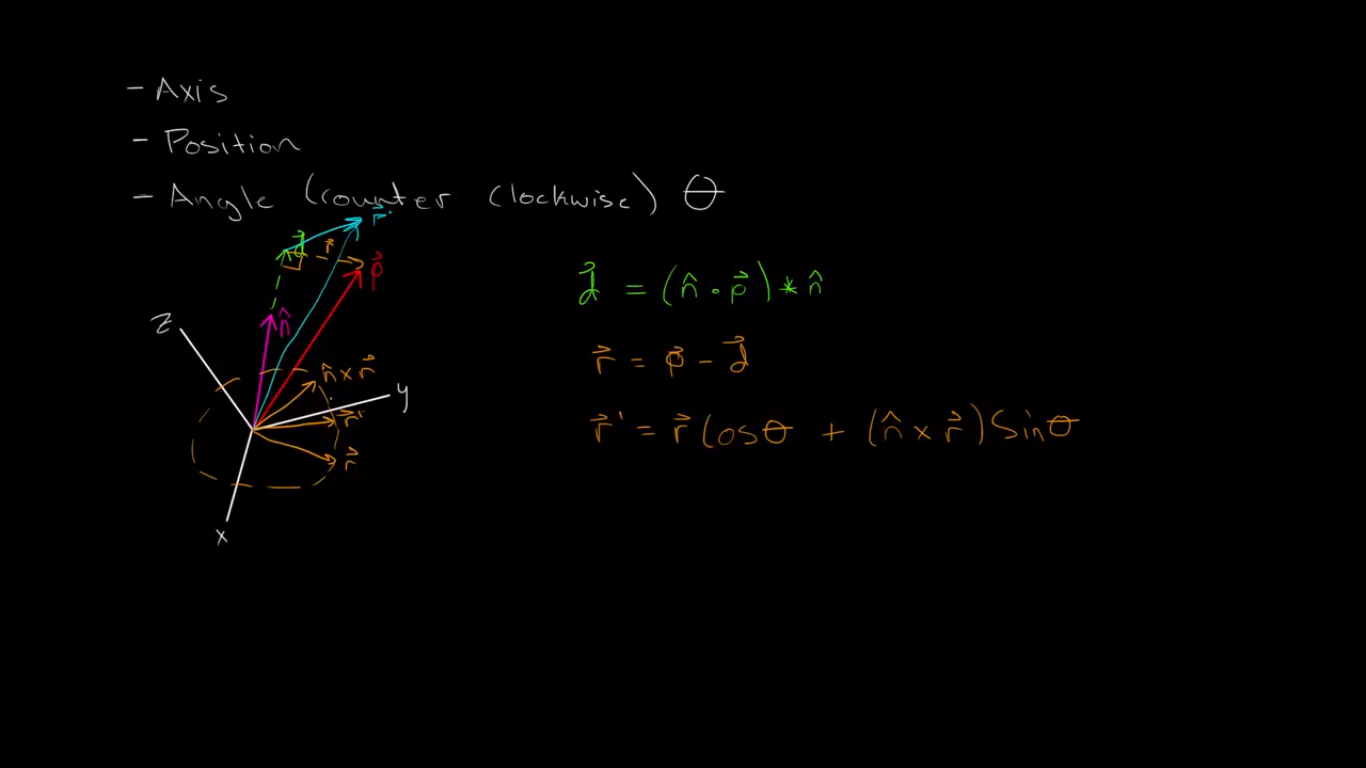 - Axis
- Position
- Angle (counter clockwise) θ
r⃗'
d⃗
r⃗
p⃗
n̂
z
n̂ × r⃗
y
r⃗'
r⃗
x
d⃗ = (n̂ · p⃗) * n̂
r⃗ = p⃗ - d⃗
r⃗' = r⃗ Cosθ + (n̂ × r⃗) Sinθ